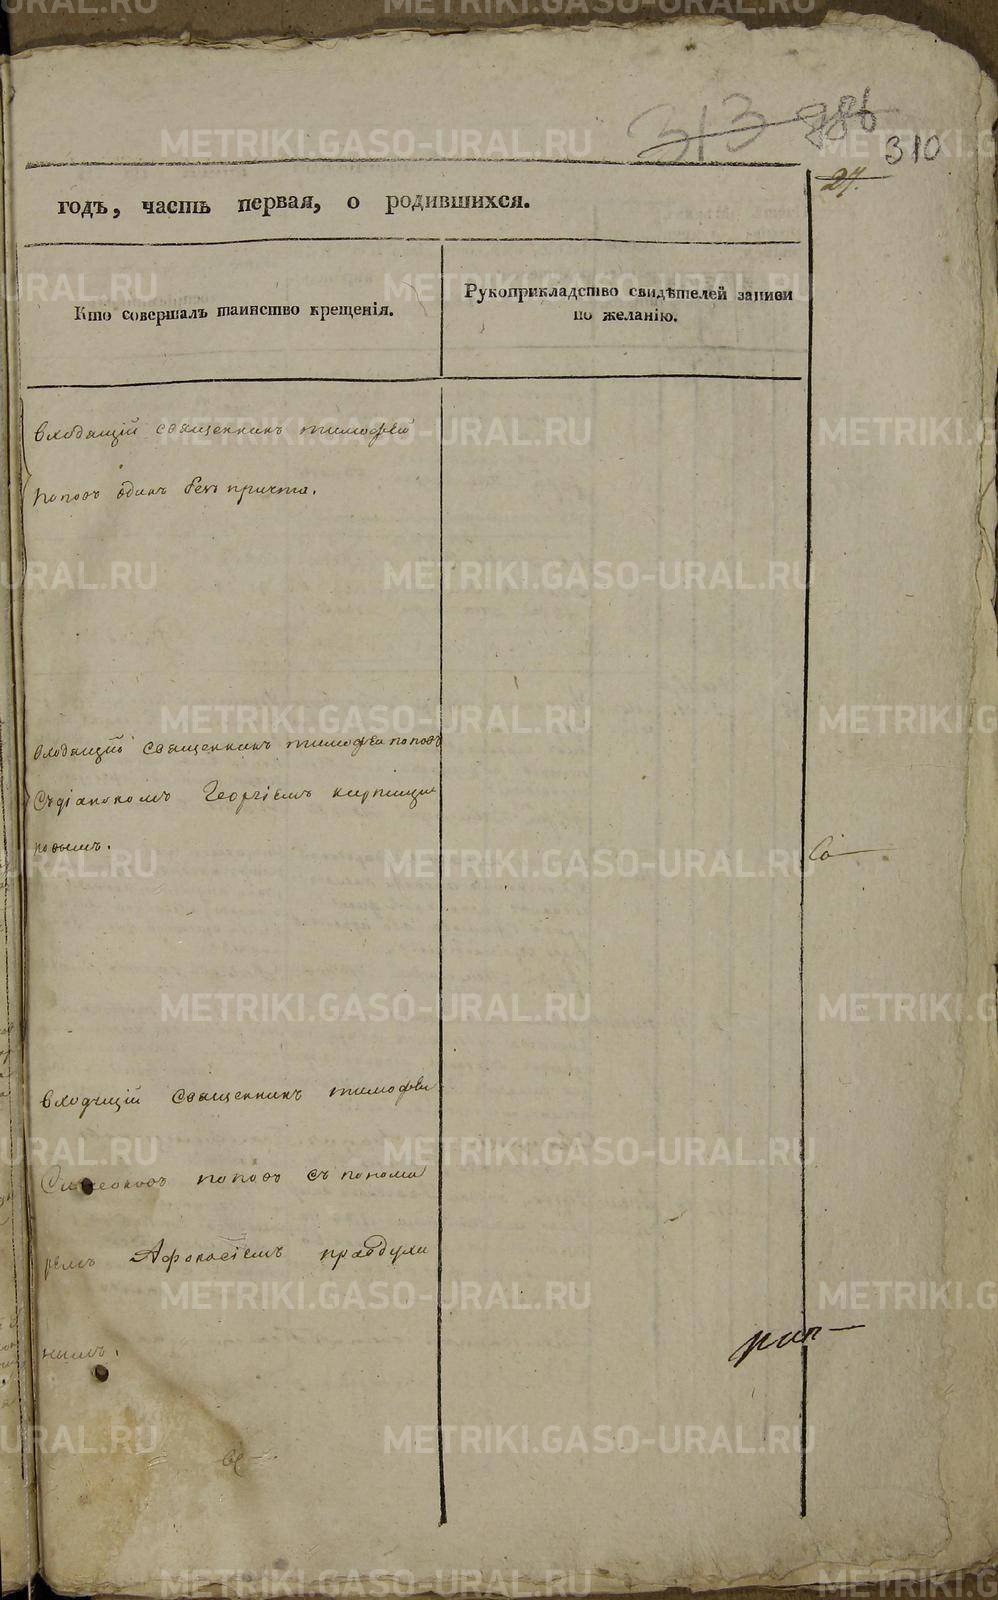 313 986
310
27.
годъ, часть первая, о родившихся.
Кто совершалъ таинство крещенія.
Рукоприкладство свидѣтелей записи
по желанію.
входящій священникъ тимофей
поповъ одинъ безъ причта.
входящій священникъ тимофей поповъ
съ діакономъ Георгіемъ кирпищи
ковымъ.
Со
входящій священникъ тимофей
Симеоновъ поповъ съ понома
ремъ Афонасіемъ правдухи
нымъ.
METRIKI.GASO-URAL.RU